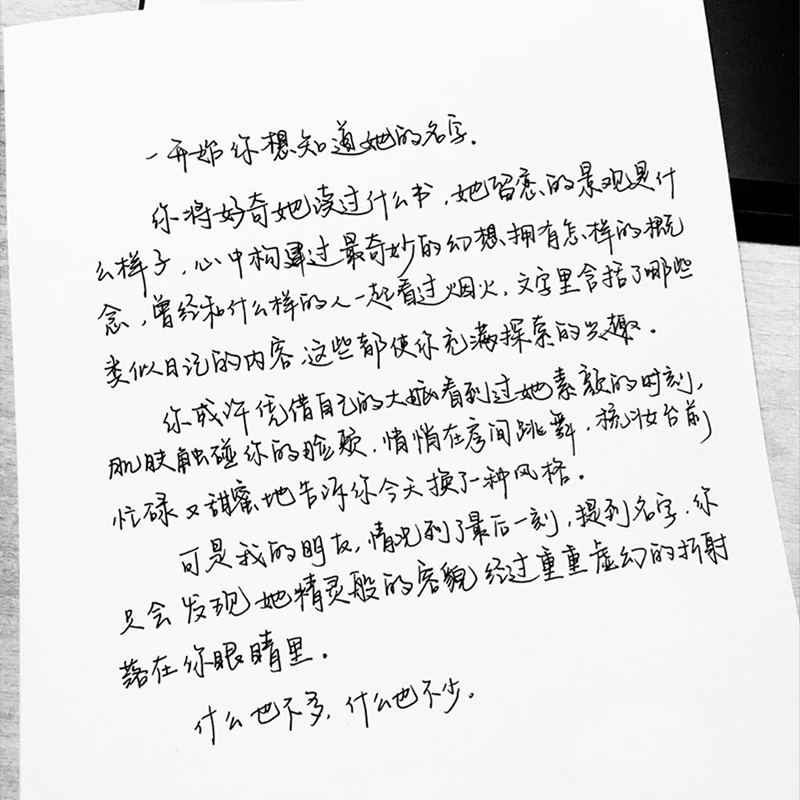 一开始你想知道她的名字.
你将好奇她读过什么书,她留恋的景观是什
么样子,心中构建过最奇妙的幻想拥有怎样的概
念,曾经和什么样的人一起看过烟火,文字里含括了哪些
类似日记的内容,这些都使你充满探索的兴趣.
你或许凭借自己的大脑看到过她素颜的时刻,
肌肤触碰你的脸颊,悄悄在房间跳舞,梳妆台前
忙碌又甜蜜地告诉你今天换了一种风格.
可是我的朋友,情况到了最后一刻,提到名字,你
只会发现她精灵般的容貌经过重重虚幻的折射
落在你眼睛里.
什么也不多,什么也不少.